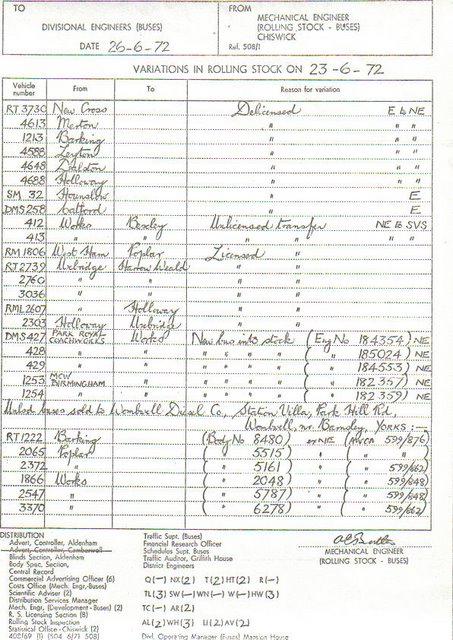 TO
DIVISIONAL ENGINEERS (BUSES)
DATE 26-6-72
FROM
MECHANICAL ENGINEER
(ROLLING STOCK - BUSES)
CHISWICK
Ref. 508/1
VARIATIONS IN ROLLING STOCK ON 23-6-72
Vehicle number From To Reason for variation
RT 3730 New Cross Delicensed E to NE
4613 Merton " " "
1213 Barking " " "
4588 Leyton " " "
4648 Dalston " " "
4688 Holloway " " "
SM 32 Hounslow " E
DMS 258 Catford " E
412 Works Bexley Unlicensed transfer NE to SVS
413 " " " " " "
RM 1806 West Ham Poplar Licensed "
RT 2739 Uxbridge Harrow Weald " "
2760 " " " "
3036 " " " "
RML 2607 " Holloway " "
2303 Holloway Uxbridge " "
DMS 427 PARK ROYAL COACHWORKS Works New bus into stock (Eng No 184354) NE
428 " " " " " " ( " 185024) NE
429 " " " " " " ( " 184553) NE
1253 MCW BIRMINGHAM " " " " " ( " 182357) NE
1254 " " " " " " ( " 182359) NE
Unlicd. buses sold to Wombwell Diesel Co., Station Villa, Park Hill Rd,
Wombwell, nr. Barnsley, YORKS :—
RT 1222 Barking (Body No 8480) ex NE ( 599/876)
2065 Poplar ( " 5515) " ( " " )
2372 " ( " 5161) " ( " 599/662)
1866 Works ( " 2048) " ( " 599/848)
2547 " ( " 5787) " ( " 599/848)
3370 " ( " 6278) " ( " 599/662)
MECHANICAL ENGINEER
(ROLLING STOCK - BUSES)
DISTRIBUTION
Advert. Controller, Aldenham
Advert. Controller, Camberwell
Blinds Section, Aldenham
Body Spec. Section,
Central Record
Commercial Advertising Officer (6)
Costs Office (Mech. Engr. Buses)
Scientific Adviser (2)
Distribution Services Manager
Mech. Engr. (Development - Buses) (2)
R. S. Licensing Section (8)
Rolling Stock Inspection
Statistical Office - Chiswick (2)
402169 (1) (504 6171 508)
Traffic Supt. (Buses)
Financial Research Officer
Schedules Supt. Buses
Traffic Auditor, Griffith House
District Engineers
Q (—) NX (2) T (2) HT (2) R (—)
TL (3) SW (—) WN (—) W (—) HW (3)
TC (—) AR (2)
AL (2) WH (3) U (2) AV (2)
Divl. Operating Manager (Buses) Mansion House